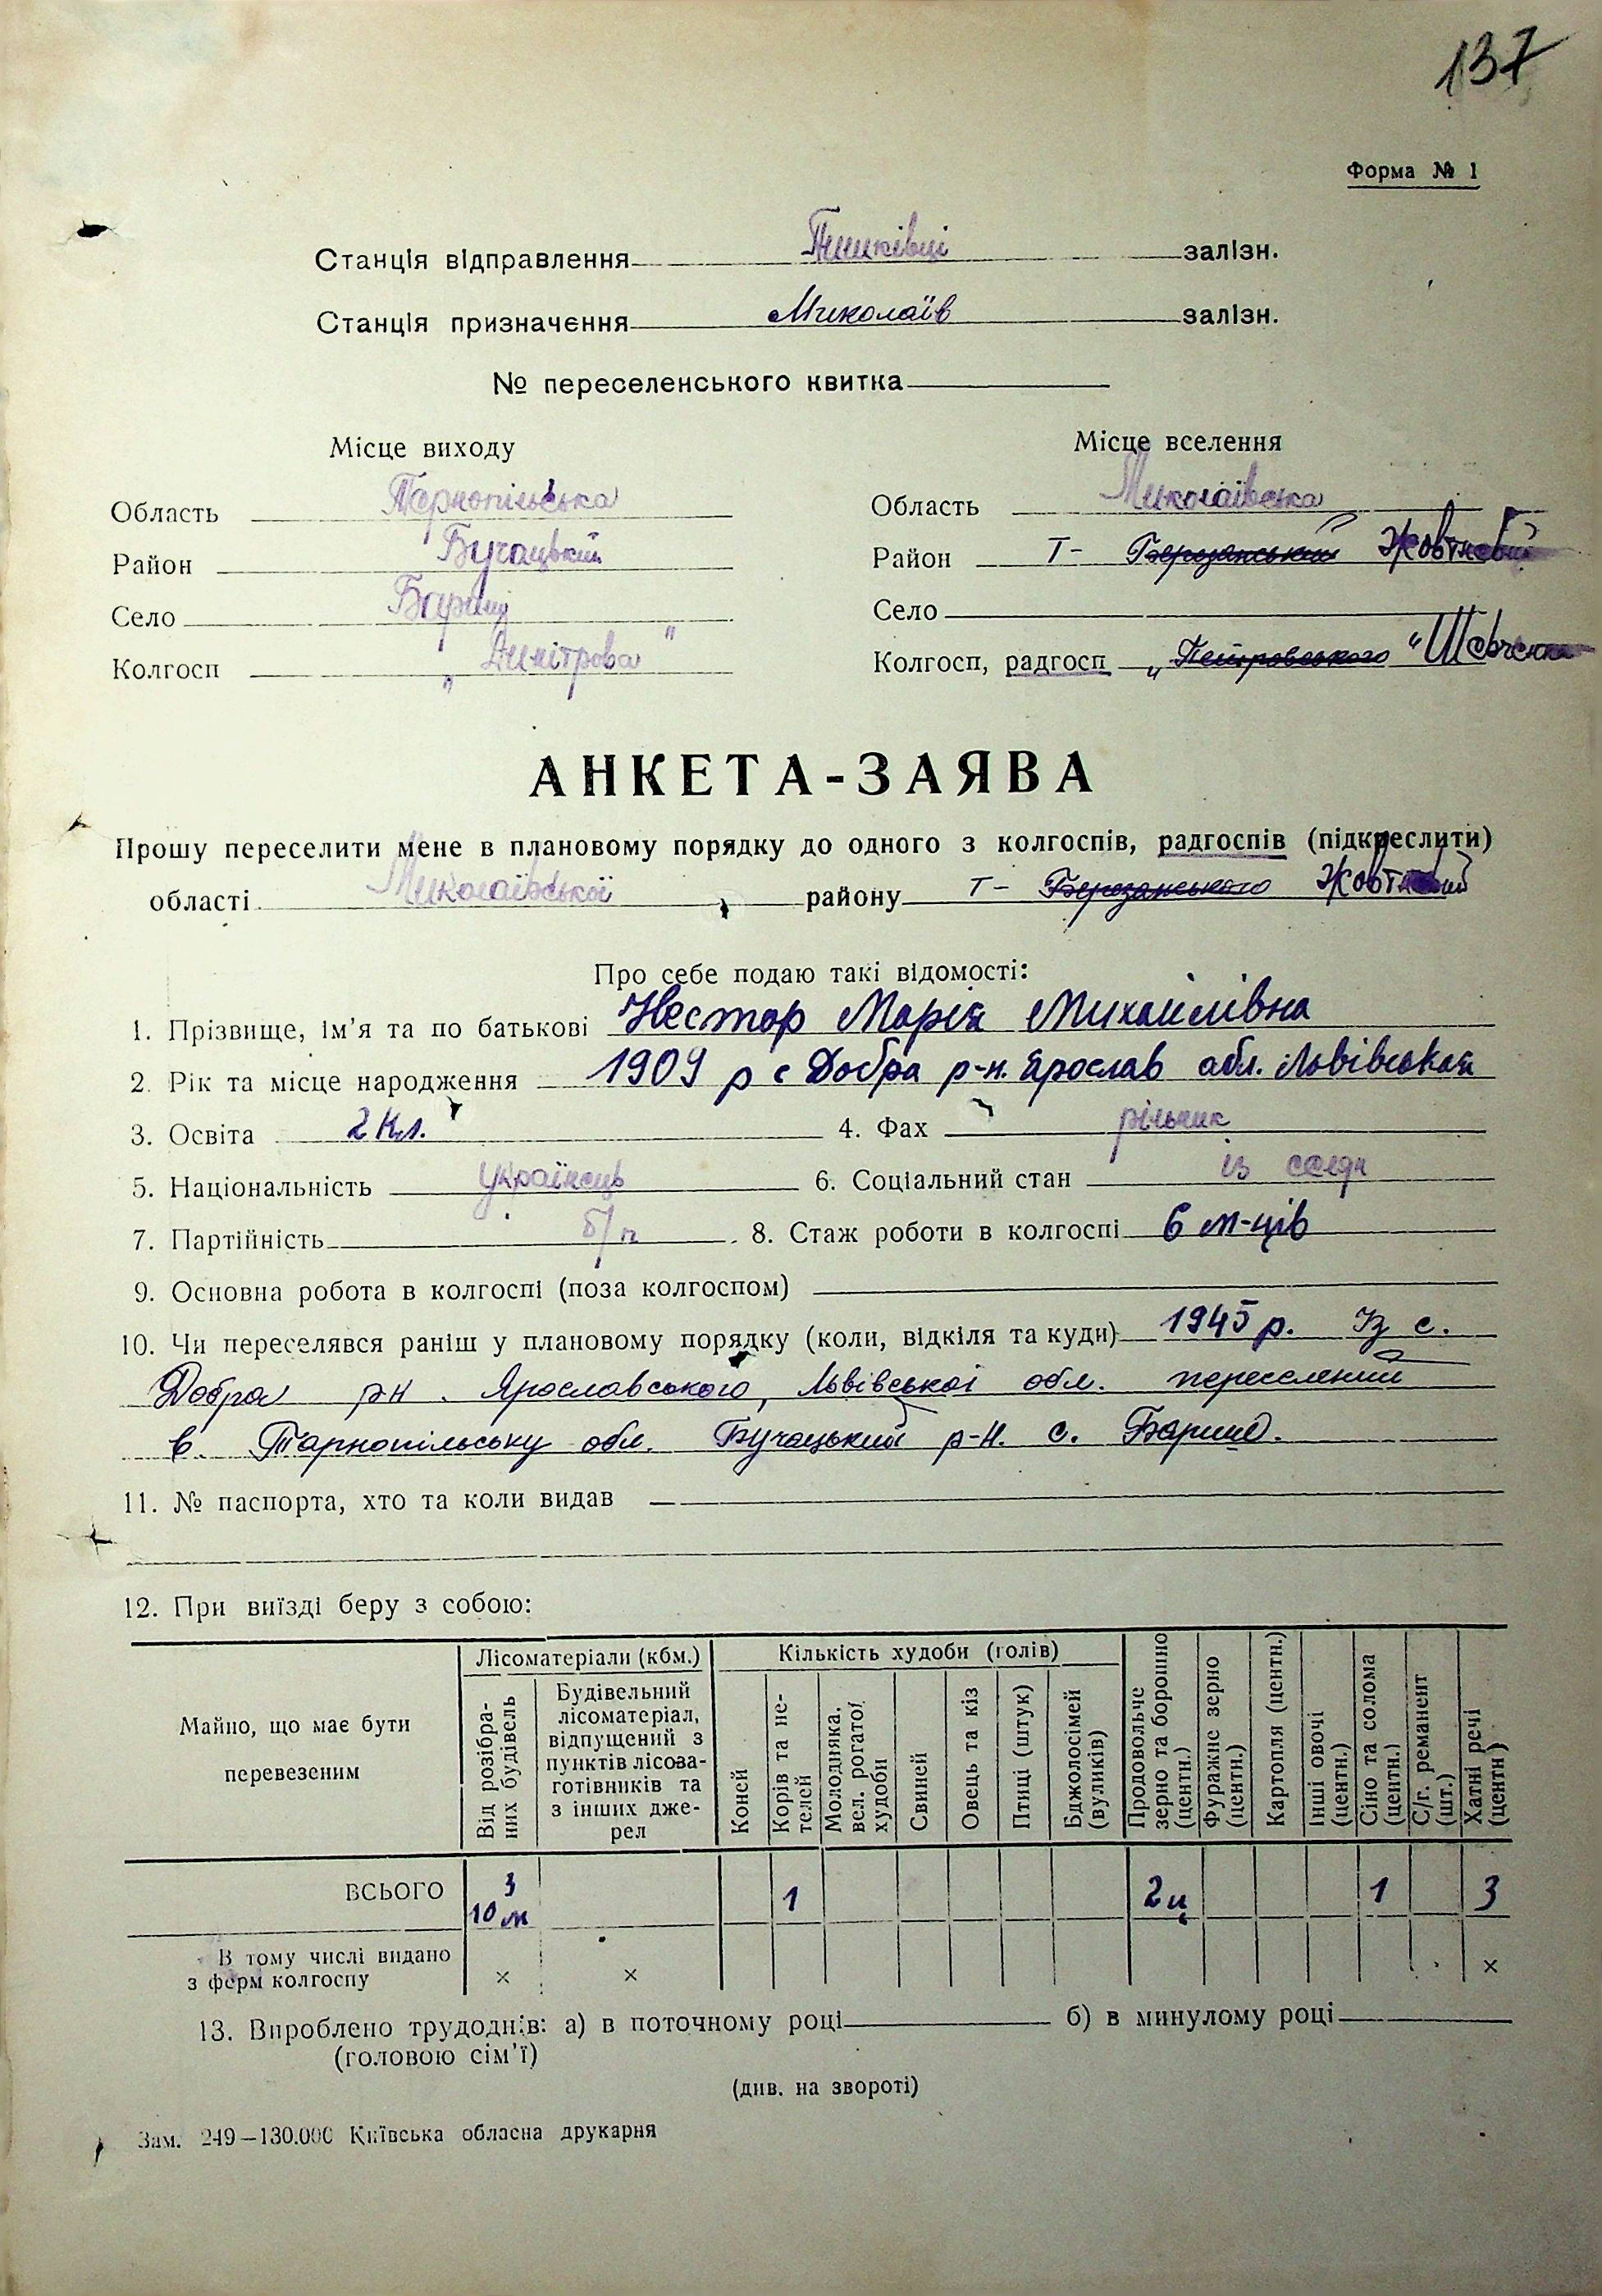 137
Форма № 1
Станція відправлення Пишківці залізн.
Станція призначення Миколаїв залізн.
№ переселенського квитка
Місце виходу Місце вселення
Область Тернопільська Область Миколаївська
Район Бучацький Район Т- Березанський Жовтневий
Село Бариш Село
Колгосп „Димітрова" Колгосп, радгосп „Петровського "Шевченка
АНКЕТА-ЗАЯВА
Прошу переселити мене в плановому порядку до одного з колгоспів, радгоспів (підкреслити)
області Миколаївської району Т- Березанського Жовтневий
Про себе подаю такі відомості:
1. Прізвище, ім'я та по батькові Нестор Марія Михайлівна
2. Рік та місце народження 1909 р с Добра р-н. Ярослав обл. Львівська
3. Освіта 2 кл. 4. Фах рільник
5. Національність українець 6. Соціальний стан із селян
7. Партійність б/п 8. Стаж роботи в колгоспі 6 м-ців
9. Основна робота в колгоспі (поза колгоспом)
10. Чи переселявся раніш у плановому порядку (коли, відкіля та куди) 1945 р. Із с.
Добра рн. Ярославського, Львівської обл. переселений
в. Тарнопільську обл. Бучацький р-н. с. Бариш.
11. № паспорта, хто та коли видав
12. При виїзді беру з собою:
Майно, що має бути перевезеним
Лісоматеріали (кбм.)
Кількість худоби (голів)
Від розібраних будівель
Будівельний лісоматеріал, відпущений з пунктів лісозаготівників та з інших джерел
Коней
Корів та нетелей
Молодняка, вел. рогатої худоби
Свиней
Овець та кіз
Птиці (штук)
Бджолосімей (вуликів)
Продовольче зерно та борошно (центн.)
Фуражне зерно (центн.)
Картопля (центн.)
Інші овочі (центн.)
Сіно та солома (центн.)
С/г. реманент (шт.)
Хатні речі (центн)
ВСЬОГО 3 10 м 1 2ц 1 3
В тому числі видано з ферм колгоспу × × ×
13. Вироблено трудоднів: а) в поточному році б) в минулому році
(головою сім'ї)
(див. на звороті)
Зам. 249—130.000 Київська обласна друкарня